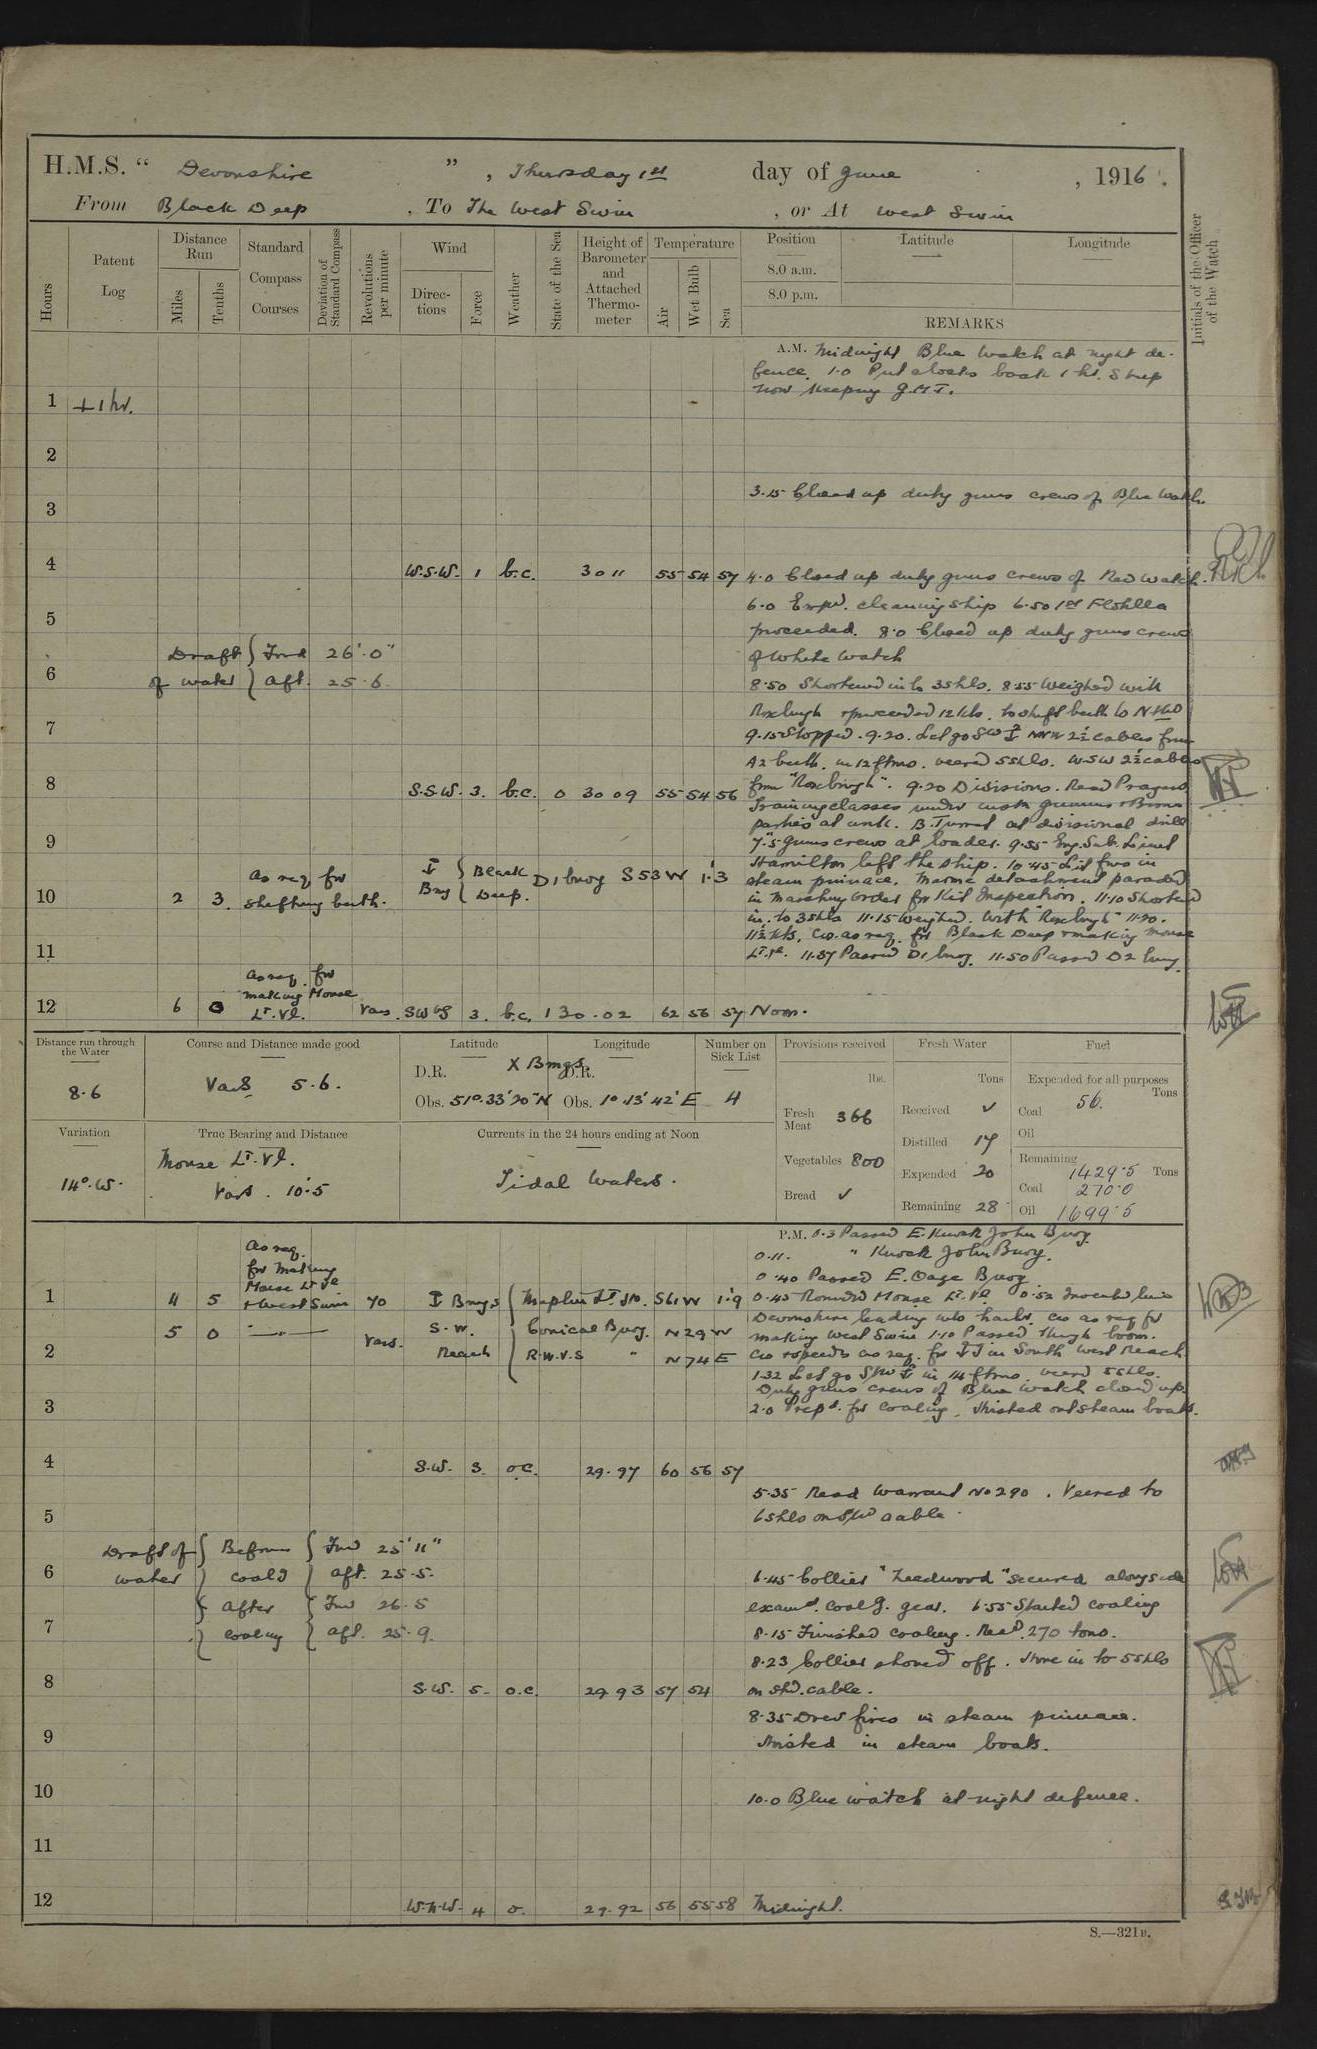 H.M.S. “ Devonshire ”, Thursday 1st day of June , 1916.
From Black Deep , To The West Swin , or At West Swin
Hours
Patent Log
Distance Run
Miles
Tenths
Standard Compass Courses
Deviation of Standard Compass
Revolutions per minute
Wind
Directions
Force
Weather
State of the Sea
Height of Barometer and Attached Thermometer
Temperature
Air
Wet Bulb
Sea
Position
8.0 a.m.
8.0 p.m.
Latitude
Longitude
REMARKS
Initials of the Officer of the Watch
A.M. Midnight Blue Watch at night de-
fence. 1.0 Put clocks back 1 hr. Ship
now keeping G.M.T.
1 +1 hr.
2
3.15 Closed up duty guns crews of Blue Watch.
3
4 W.S.W. 1 b.c. 30 11 55 54 57 4.0 Closed up duty guns crews of Red Watch.
6.0 Empd. cleaning ship 6.50 1st Flotilla
5 proceeded. 8.0 Closed up duty guns crews
Draft of water { Ford 26'.0" of White Watch
6 Aft. 25.6 8.50 Shortened in to 3 shls. 8.55 Weighed with
Roxburgh & proceeded 12 kts. to shift berth to
7 9.15 Stopped. 9.20. Let go 2½ cables from
A2 berth. in 12 fms. veered 5 shls. W.S.W 2½ cables
8 S.S.W. 3. b.c. 0 30 09 55 54 56 from "Roxburgh". 9.20 Divisions. Read Prayers
Training classes under instn
parties at work. B. Turret at divisional drill
9 7.5 guns crews at loader. 9.55 Eng. Sub. Lieut
Hamilton left the ship. 10.45 Lit fires in
10 2 3. As req. for shifting berth. Bng { Black Deep. D1 buoy S 53 W 1'.3 steam pinnace. Marine detachment paraded
in Marching Order for Kit Inspection. 11.10 Shortened
in to 3 shls 11.15 Weighed. with "Roxburgh" 11.20.
11 11½ kts. Co. as req. for Black Deep & making Mouse
Lt. Vl. 11.37 Passed D1 buoy. 11.50 Passed D2 buoy.
12 6 0 As req. for making Mouse Lt. Vl. Vars. SW b S 3. b.c. 1 30.02 62 56 57 Noon.
Distance run through the Water
8.6
Course and Distance made good
Vars 5.6.
Latitude
D.R.
Obs. 51°.33'20"N
X Bngs.
Longitude
D.R.
Obs. 1°.13'42"E
Number on Sick List
4
Variation
14°.W.
True Bearing and Distance
Mouse Lt. Vl.
Vars. 10.5
Currents in the 24 hours ending at Noon
Tidal Waters.
Provisions received
lbs.
Fresh Meat 366
Vegetables 800
Bread ✓
Fresh Water
Tons
Received ✓
Distilled 17
Expended 20
Remaining 28
Fuel
Expended for all purposes
Coal 56. Tons
Oil
Remaining
Coal 1429.5 Tons
270.0
Oil 1699.5
P.M. 0.3 Passed E. Knock John Buoy
0.11. " Knock John Buoy.
0.40 Passed E. Oaze Buoy.
1 11 5 As req. for making Mouse Lt Vl & West Swin 70 Bngs { Maplin Lt. Ho. S61W 1'.9 0.45 Rounded Mouse Lt. Vl. 0.52 Inverted line
Devonshire leading into harbr. Co as req for
5 0 —„— Vars. S.W. Reach Conical Buoy. N 29 W making West Swin 1.10 Passed through boom.
2 R.W.V.S " N 74 E Co & speeds as req. for in South West Reach
1.32 Let go in 14 fms veered 5 shls.
Duty guns crews of Blue Watch closed up.
3 2.0 Prepd. for coaling. Hoisted out steam boats.
4 S.W. 3. o.c. 29.97 60 56 57
5.35 Read Warrant No 290. Veered to
5 6 shls on cable.
Draft of water { Before coalg { Ford 25'11"
6 Aft. 25.5. 6.45 Collier "Leedwood" secured alongside
After coaling { Ford 26.5 examd. Coalg. gear. 6.55 Started coaling
7 Aft. 25.9. 8.15 Finished coaling. Recd. 270 tons.
8.23 Collier shoved off. Hove in to 5 shls
8 S.W. 5. o.c. 29.93 57 54 on Stbd. cable.
8.35 Drew fires in steam pinnace.
9 Hoisted in steam boats.
10 10.0 Blue watch at night defence.
11
12 W.N.W. 4 o. 29.92 56 55 58 Midnight.
S.—321B.